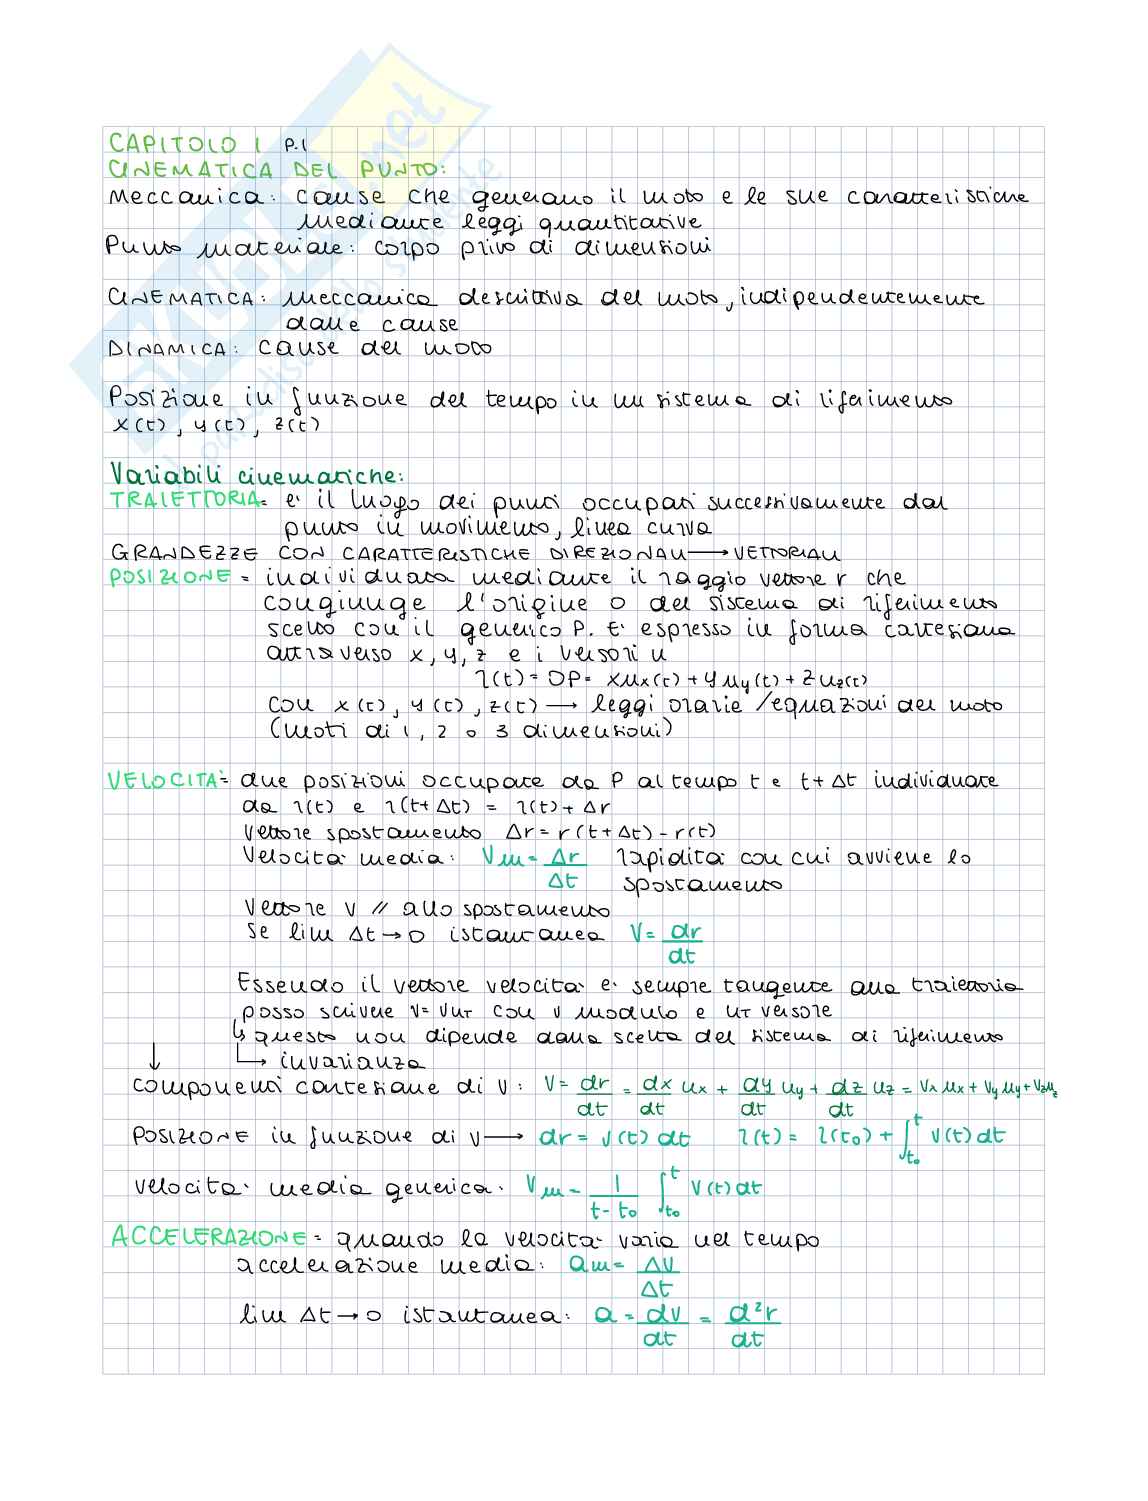 CAPITOLO 1 P.1
CINEMATICA DEL PUNTO:
Meccanica: cause che generano il moto e le sue caratteristiche
mediante leggi quantitative
Punto materiale: corpo privo di dimensioni
CINEMATICA: meccanica descrittiva del moto, indipendentemente
dalle cause
DINAMICA: cause del moto
Posizione in funzione del tempo in un sistema di riferimento
x(t), y(t), z(t)
Variabili cinematiche:
TRAIETTORIA= è il luogo dei punti occupati successivamente dal
punto in movimento, linea curva
GRANDEZZE CON CARATTERISTICHE DIREZIONALI → VETTORIALI
POSIZIONE = individuata mediante il raggio vettore r che
congiunge l'origine O del sistema di riferimento
scelto con il generico P. È espresso in forma cartesiana
attraverso x, y, z e i versori u
r(t) = OP = xux(t) + yuy(t) + zuz(t)
con x(t), y(t), z(t) → leggi orarie /equazioni del moto
(moti di 1, 2 o 3 dimensioni)
VELOCITÀ = due posizioni occupate da P al tempo t e t+Δt individuate
da r(t) e r(t+Δt) = r(t)+Δr
Vettore spostamento Δr = r(t+Δt) - r(t)
Velocità media: Vm = Δr/Δt rapidità con cui avviene lo
spostamento
Vettore v // allo spostamento
Se lim Δt→0 istantanea V = dr/dt
Essendo il vettore velocità è sempre tangente alla traiettoria
posso scrivere v = vuT con v modulo e uT versore
↳ questo non dipende dalla scelta del sistema di riferimento
↓ ↳ invarianza
componenti cartesiane di v: V = dr/dt = dx/dt ux + dy/dt uy + dz/dt uz = vx ux + vy uy + vz uz
POSIZIONE in funzione di v → dr = v(t) dt r(t) = r(t₀) + ∫t₀^t v(t) dt
velocità media generica: Vm = 1/(t-t₀) ∫t₀^t v(t) dt
ACCELERAZIONE = quando la velocità varia nel tempo
accelerazione media: am = ΔV/Δt
lim Δt→0 istantanea: a = dv/dt = d²r/dt